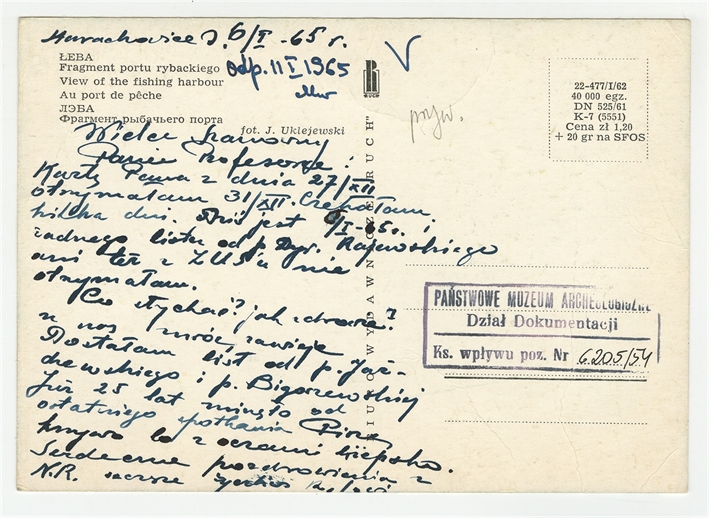 6/I - 65 r.
ŁEBA
Fragment portu rybackiego
View of the fishing harbour
Au port de pêche
ЛЭБА
Фрагмент рыбачьего порта
fot. J. Uklejewski
odp. 11 I 1965
V
RUCH
przyw.
22-477/I/62
40 000 egz.
DN 525/61
K-7 (5551)
Cena zł 1,20
+ 20 gr na SFOS
Wielce Szanowny
Panie Profesorze!
Kartę Pana z dnia 27/XII
otrzymałam 31/XII. Czekałam
kilka dni. Dziś jest 6/I-65 r. i
żadnego listu od p. Dyr. Rajewskiego
ani też z ZUS'u nie
otrzymałam.
Co słychać? jak zdrowie?
u nas mróz,
Dostałam list od p. Jaż-
dżewskiego i p.
Już 25 lat minęło od
ostatniego spotkania
krzywo bo z oczami kiepsko.
Serdeczne pozdrowienia
N.R.
BIURO WYDAWNICZE „RUCH"
PAŃSTWOWE MUZEUM ARCHEOLOGICZNE
Dział Dokumentacji
Ks. wpływu poz. Nr 6205/54